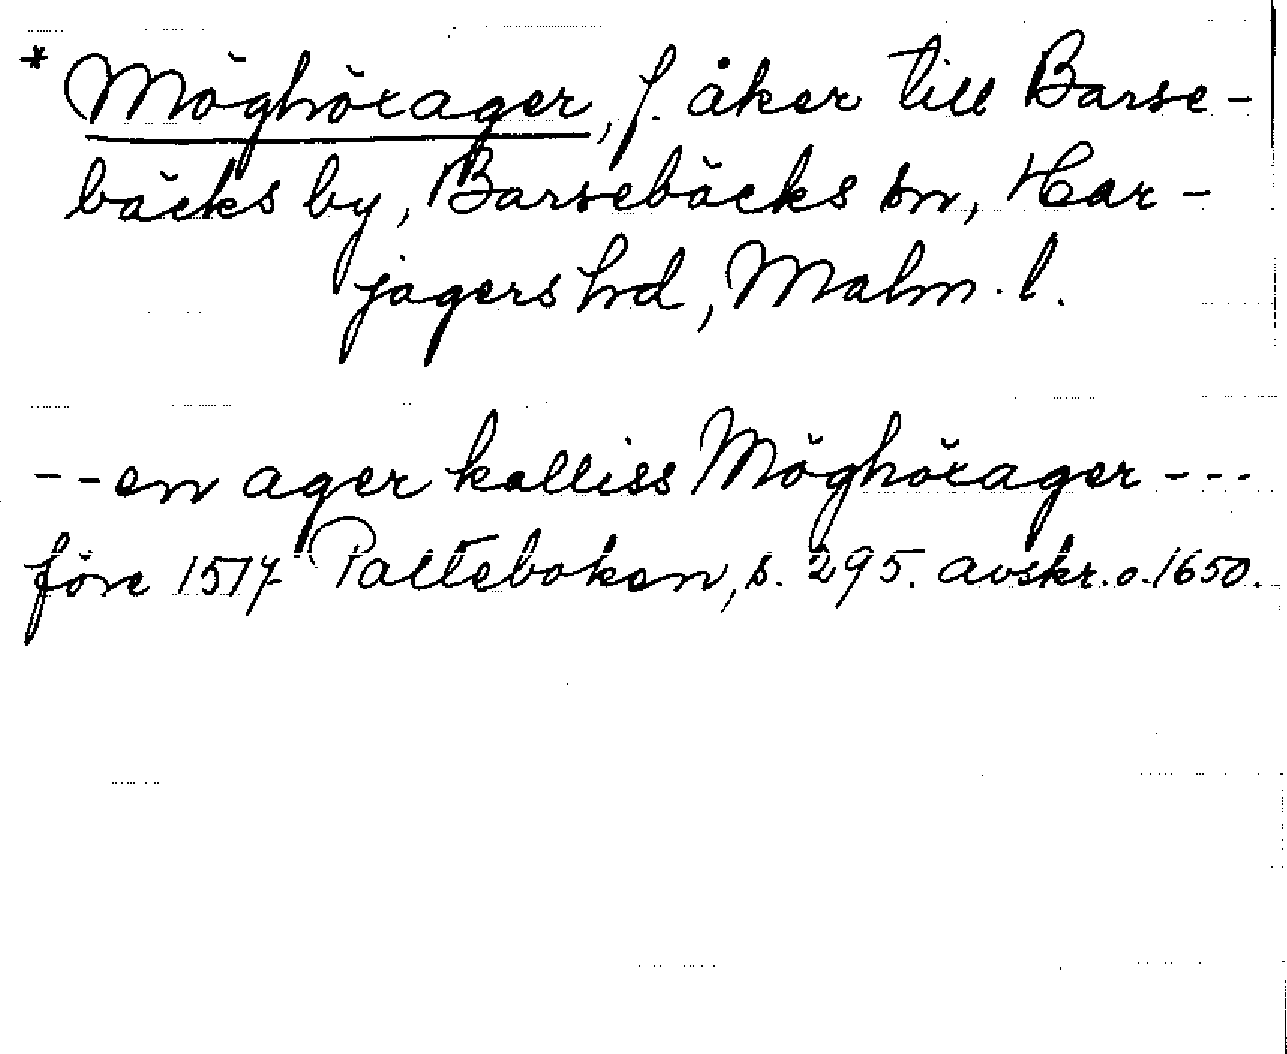 * Möghöxager, f. åker till Barse-
bäcks by, Barsebäcks sn, Har-
jagers hd, Malm. l.
-- en ager kalliss Möghöxager ---
före 1517 Palteboken, s. 295. avskr. o. 1650.